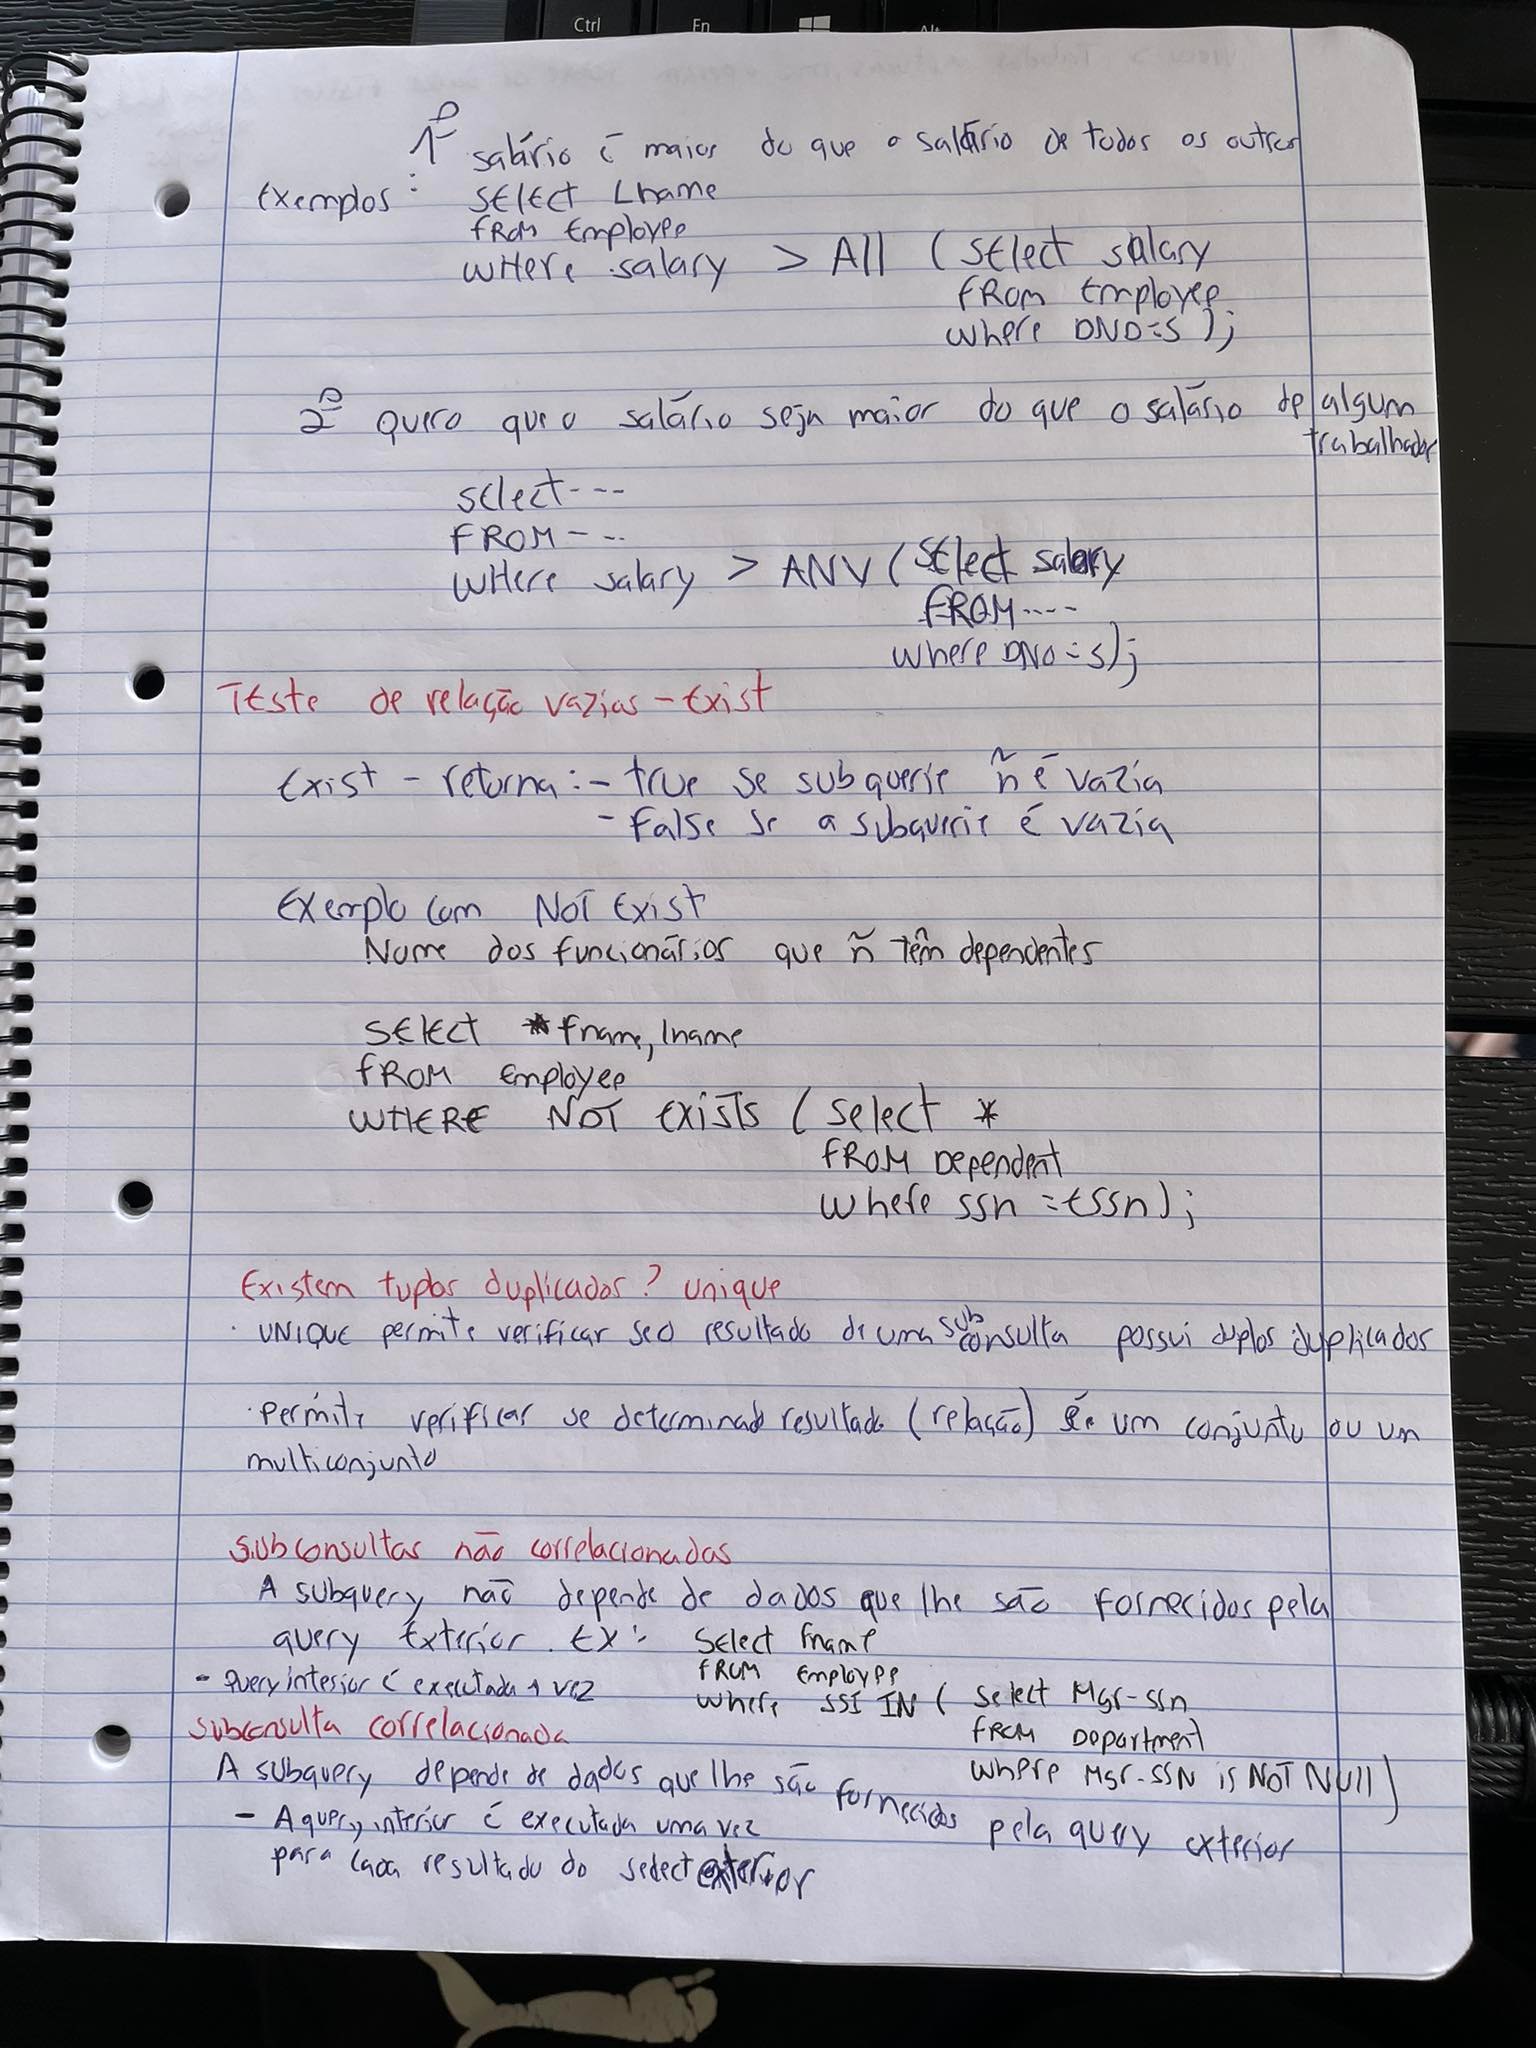 Ctrl Fn Alt
1º salário é maior do que o salário de todos os outros
Exemplos: Select Lname
From Employee
WHere salary > All (Select salary
From Employee
where DNO=5);
2º Quero que o salário seja maior do que o salário de algum
trabalhador
Select---
FROM---
WHere salary > ANY (Select salary
FROM----
where DNO=5);
Teste de relação vazias - Exist
Exist - returna: - true se subquerie ñ é vazia
- False se a subquerie é vazia
Exemplo com NOT Exist
Nome dos funcionários que ñ têm dependentes
Select * fname, lname
FROM Employee
WHERE NOT EXISTS (Select *
FROM Dependent
Where ssn = Essn);
Existem tuplos duplicados? unique
· UNIQUE permite verificar se o resultado de uma subconsulta possui duplos duplicados
· Permite verificar se determinado resultado (relação) é um conjunto ou um
multiconjunto
Subconsultas não correlacionadas
A subquery não depende de dados que lhe são fornecidos pela
query Exterior. EX:- Select fname
- Query interior é executada 1 vez FROM Employee
where SSI IN ( Select Mgr-ssn
FROM Department
where Mgr-SSN is NOT NUll)
Subconsulta correlacionada
A subquery depende de dados que lhe são fornecidos pela query exterior
- A query interior é executada uma vez
para cada resultado do select exterior